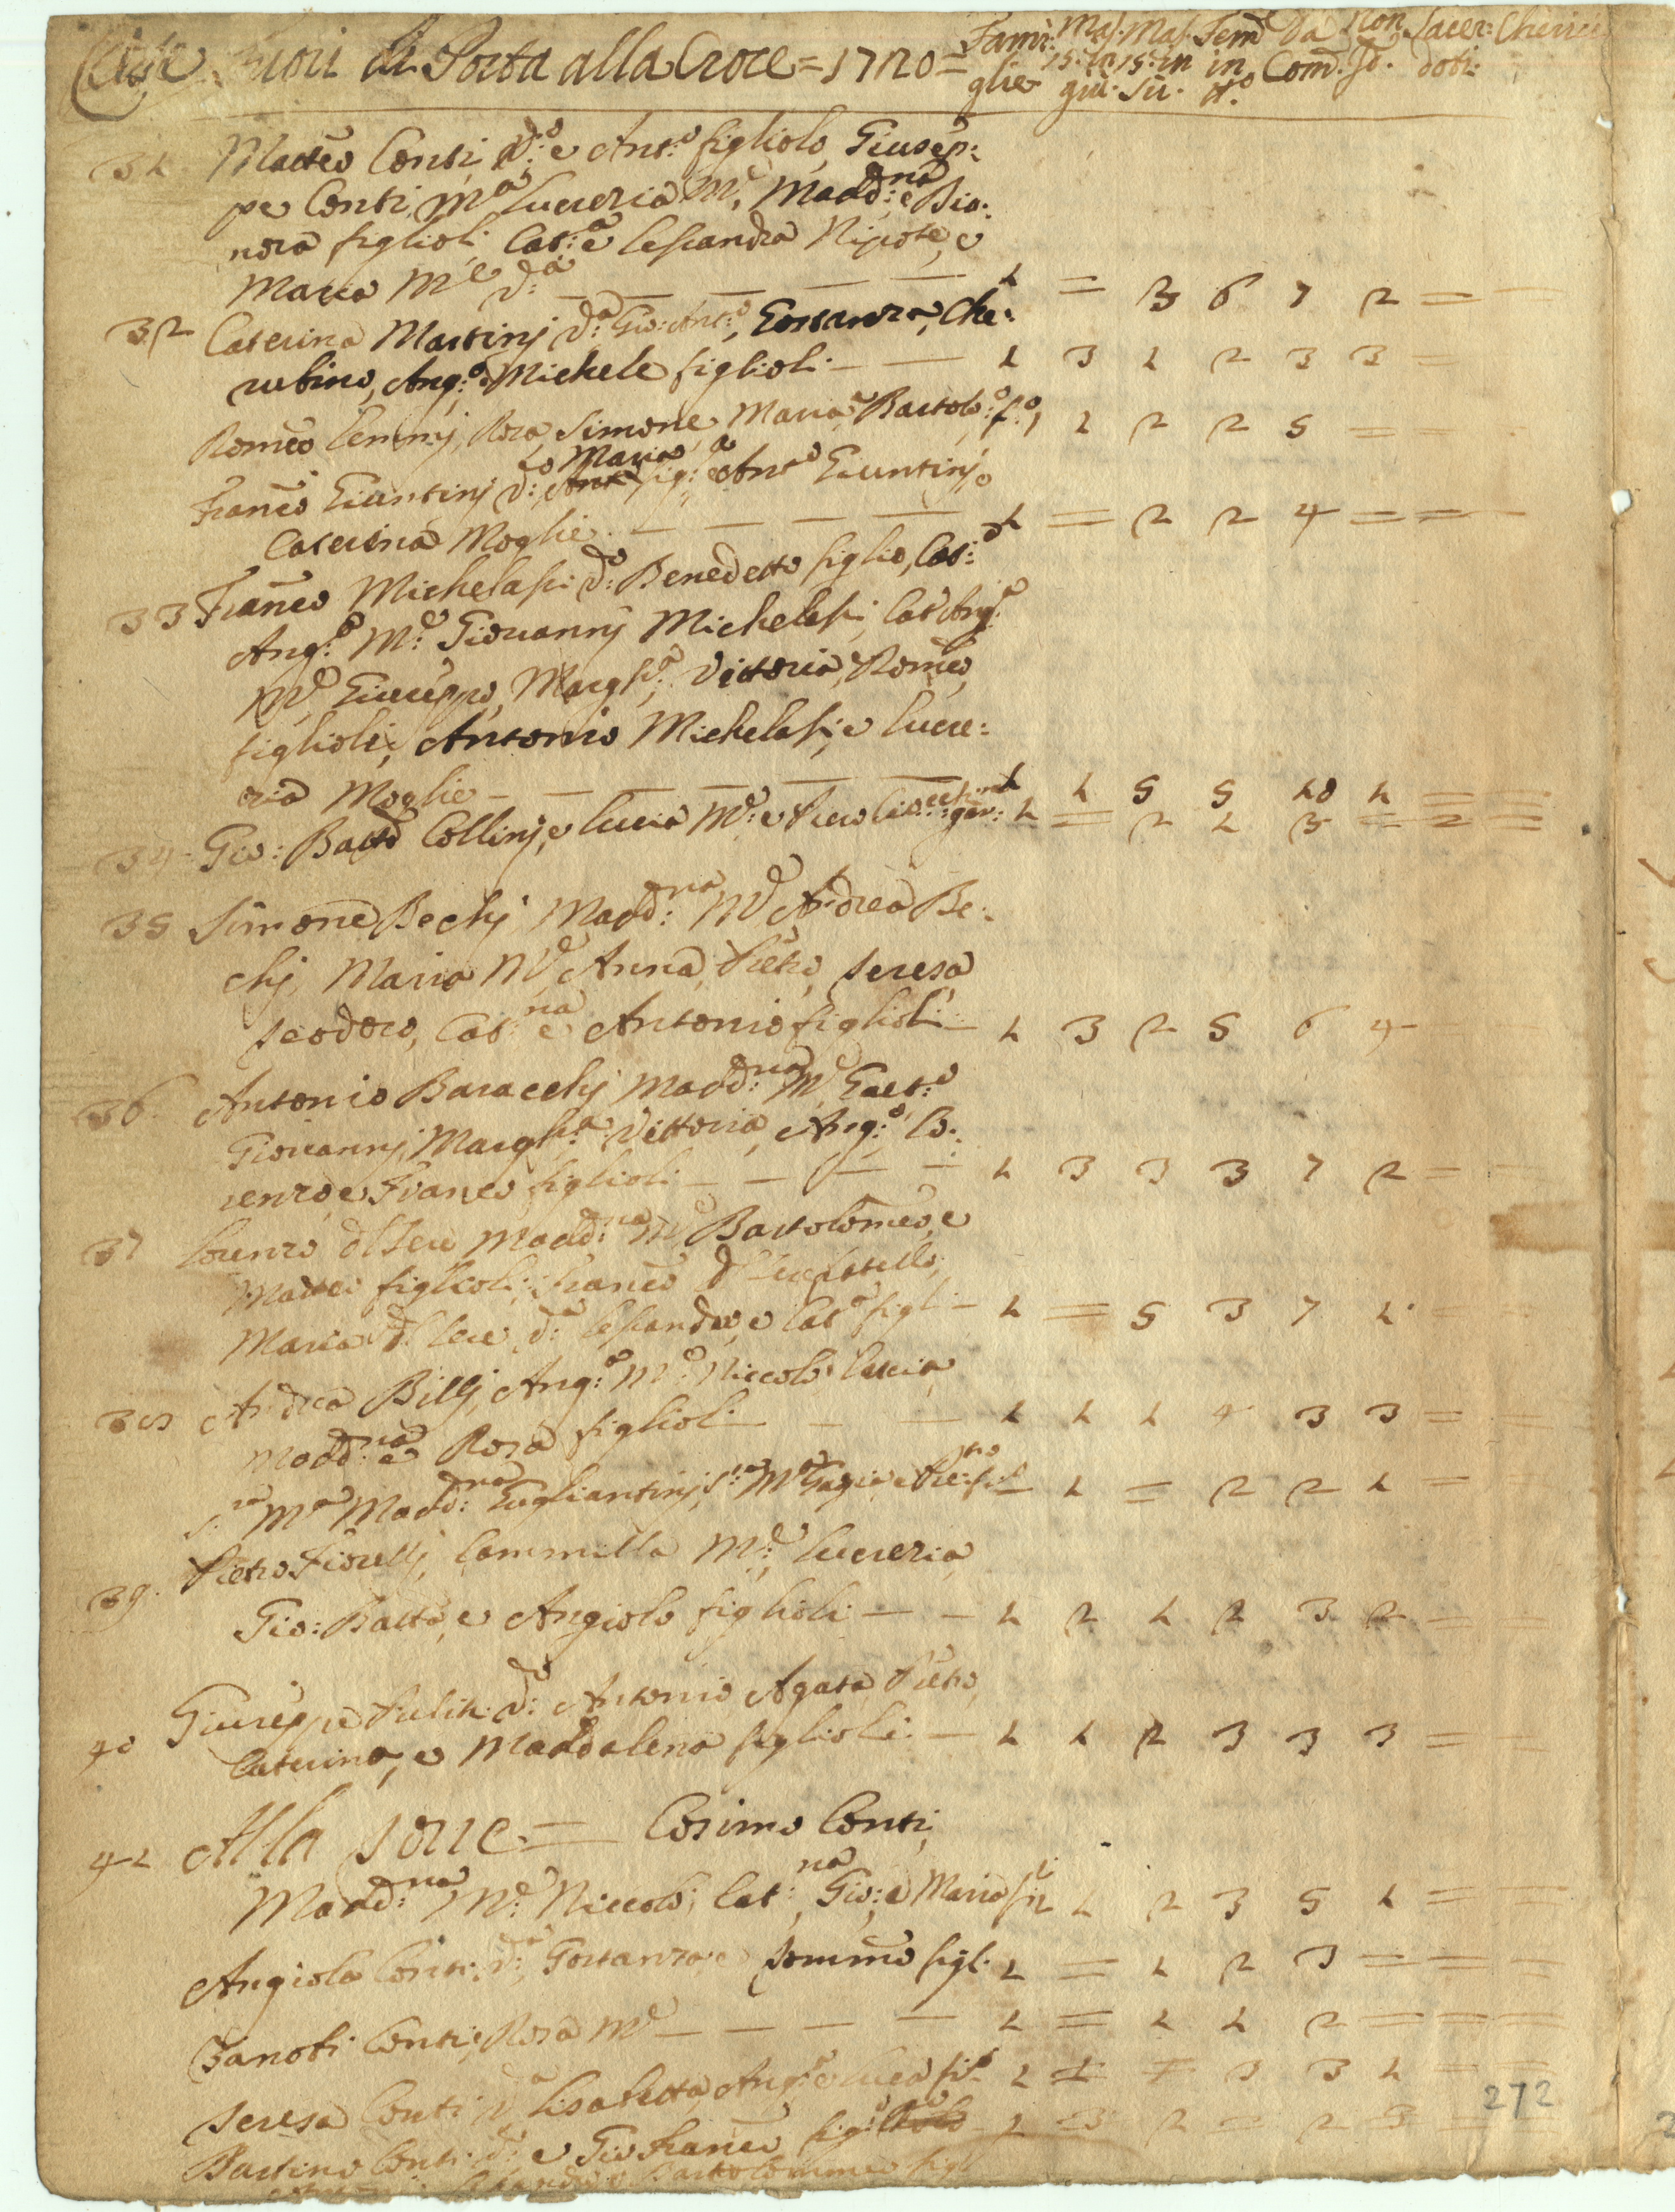 Case Fuori di Porta alla Croce = 1720 = Fami: Mas. Mas. Fem. Da Non Sacer: Cherici
glie 15. in 15. in in Com. Com. doti:
giù. sù. tt.o
31 Matteo Conti V.o e Ant.o figliolo, Giusep:
pe Conti, M.a Lucrezia M.e Madd:na e Bia:
nora figlioli Cat:a e Lessandra Nipote, e
Maria M.e V:a — — — — — 1 = 3 6 7 2 = —
32 Caterina Martinj V:a Gio: Ant:o, Gostanza, Che:
rubino, Ang:o e Michele figlioli — — 1 3 1 2 3 3 =
Romeo Cennj, Rosa, Simone, Maria, Bartolo:o f:i 1 2 2 5 = =
Franco Giuntinj V:o Maria fig:a e Ant.o Giuntinj e
Caterina Moglie — — — — 1 = 2 2 4 = = —
33 Franco Michelassi V:o Benedetto figlio, Cat:a
Ang:a M:e Giovannj Michelassi, Cat.a Ang:a
M.e Giuseppe, Margh:a, Vettoria, Romeo,
figlioli, Antonio Michelassi, e Lucre:
zia Moglie — — — — — 1 1 5 5 10 1 = =
34 Gio: Batt.a Collinj, e Lucia M:e e Piero gar: 1 = 2 1 3 = 2 =
35 Simone Bechj Madd:na M.e Andrea Be:
chj, Maria M.e Anna, Pietro, Teresa
Teodoro, Cat:na e Antonio figlioli — 1 3 2 5 6 4
36 Antonio Baracchj Madd:na M.e Gaet:o
Giovannj, Margh:a Vettoria, Ang:o Lo:
renzo e Franco figlioli — — — — 1 3 3 3 7 2 = —
37 Lorenzo Madd:na M.e Bartolomeo, e
Matteo figlioli; Franco fratello;
Maria V:a Lessandra, e Cat.a figli — 1 = 5 3 7 1 — —
38 Andrea Billj, Ang:a M:e Niccolò Lucia,
Madd:na e Rosa figlioli — — — 1 1 1 4 3 3 = =
S:ra M.a Madd:na Gugliantinj, S:ra M.a e Pie:tro 1 = 2 2 1 =
39. Pietro Fiorellj, Cammilla M:e Lucrezia
Gio: Batt.a, e Angiolo figlioli — — 1 2 1 2 3 2 — —
40 Giuseppe V:o Antonio Agata Pietro,
Caterina, e Maddalena figlioli — 1 1 2 3 3 3 = —
41 Alla Torre = Cosimo Conti,
Madd:na M:e Niccolò, Cat:na, Gio: e Maria fi:li 1 2 3 5 1 = =
Angiola Conti V:a Gostanza e Tommo figl: 1 = 1 2 3 = = =
Zanobi Conti, Rosa M.e — — — — 1 = 1 1 2 = = =
Teresa Conti V.a Lisabetta, Ang:a e Luca fi:li 1 1 = 3 3 1 — =
Bastino Conti V:o e Gio Franco fig:li 1 = 2 = 2 3 =
e Bartolommeo figl
272